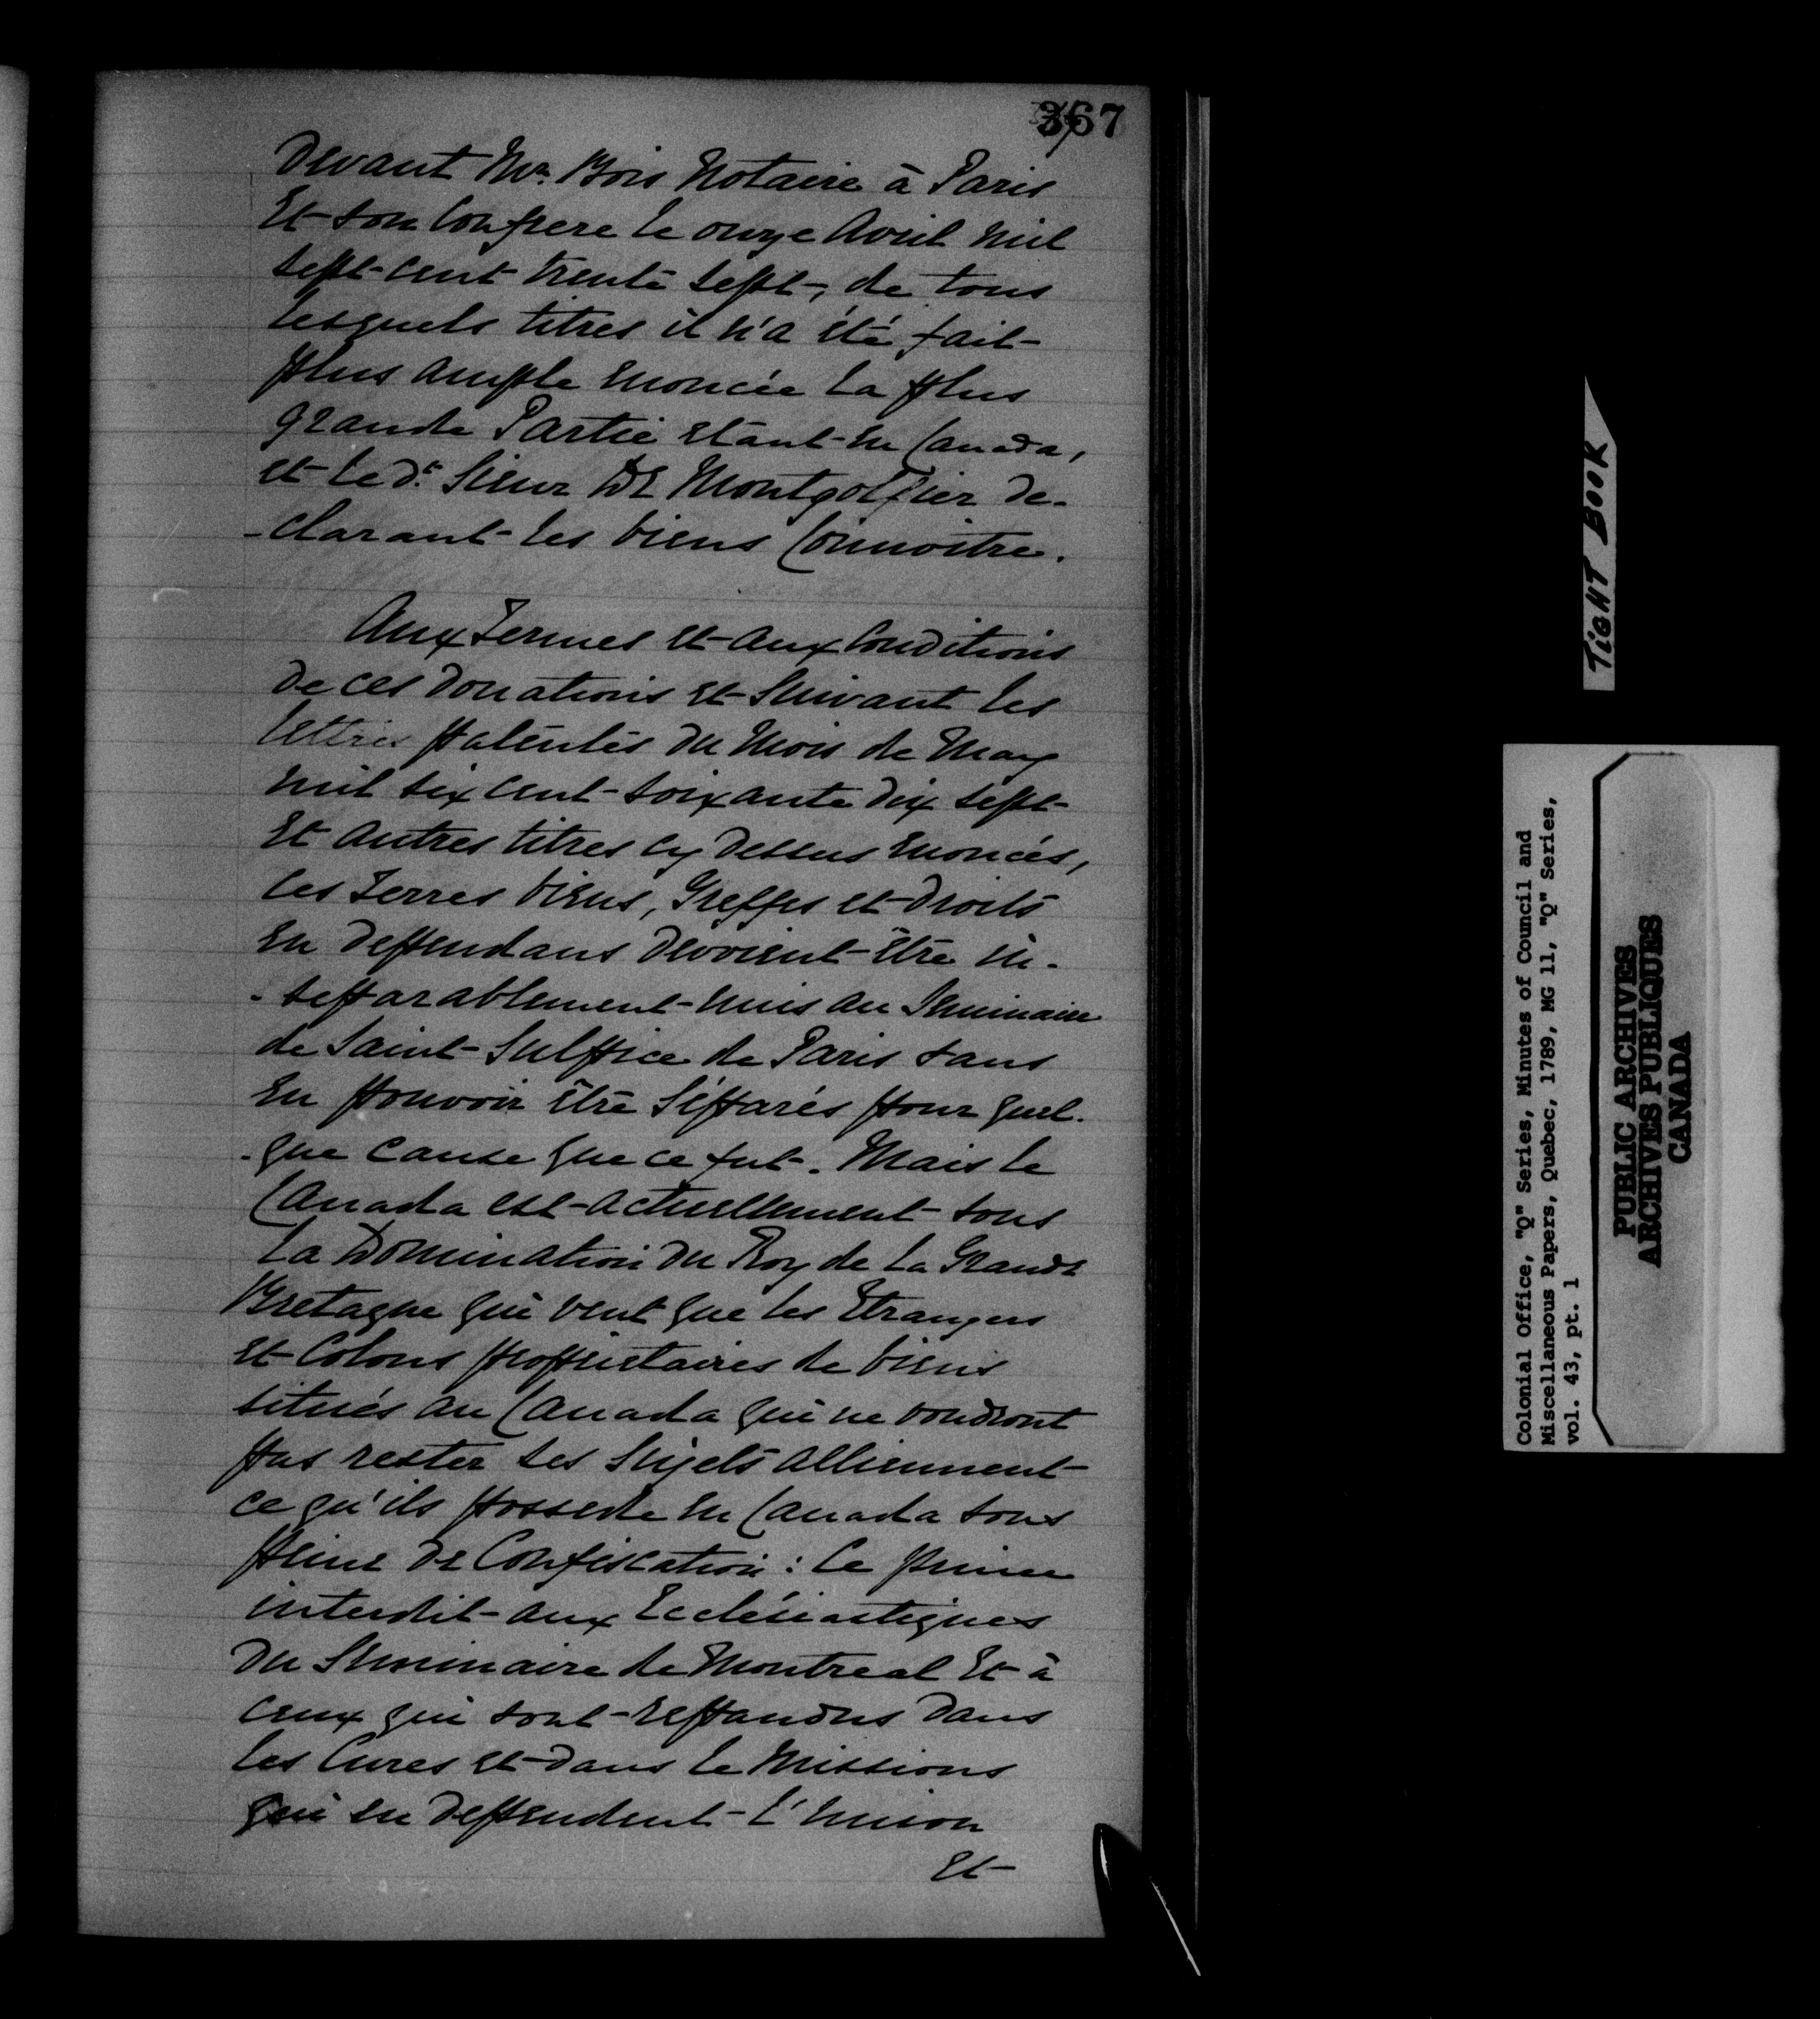 367
Devant Mr. Bois Notaire à Paris
Et son Confrere le onze Avril mil
sept-cent trente sept-, de tous
lesquels titres il n'a été fait-
plus ample énoncée la plus
grande Partie étant-en Canada,
et-le dt. Sieur De Montgolfier de-
-clarant-les biens Connoitre.
Aux Termes et-aux Conditions
de ces donations et-Suivant les
lettres patentes du mois de May
mil six cent-soixante dix sept-
Et autres titres cy dessus énoncés,
les Terres biens, Greffes et-droits
en dependans devoient-être in-
-separablement-unis au Seminaire
de Saint-Sulpice de Paris sans
en pouvoir être Séparés pour quel-
-que cause que ce fut-. Mais le
Canada est-actuellement-sous
la Domination du Roy de la Grande
Bretagne qui veut que les Etrangers
et-Colons proprietaires de biens
situés au Canada qui ne voudront
pas rester ses Sujets alliennent-
ce qu'ils possede en Canada sous
peine de Confiscation: Ce prince
interdit-aux Ecclésiastiques
du Seminaire de Montreal Et-à
ceux qui sont-repandus dans
les Cures et-dans le Missions
qui en dependent-l'union
Et-
TIGHT BOOK
Colonial Office, "Q" Series, Minutes of Council and
Miscellaneous Papers, Quebec, 1789, MG 11, "Q" Series,
vol. 43, pt. 1
PUBLIC ARCHIVES
ARCHIVES PUBLIQUES
CANADA